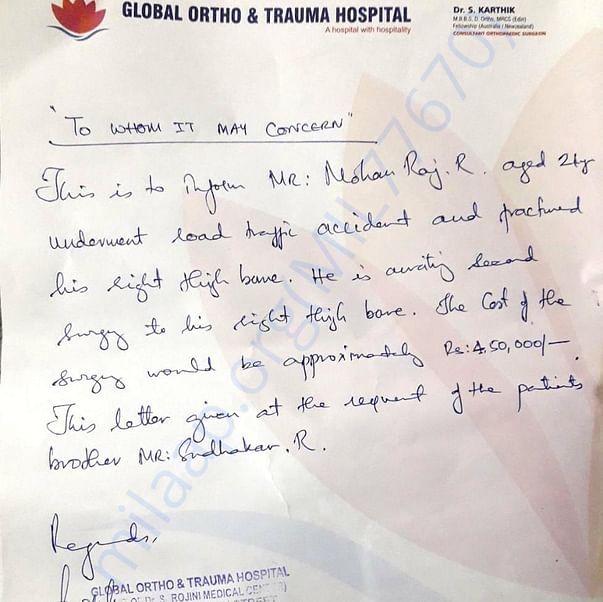 GLOBAL ORTHO & TRAUMA HOSPITAL
A hospital with hospitality
Dr. S. KARTHIK
M.B.B.S, D. Ortho, MRCS (Edin)
Fellowship (Australia / Newzealand)
CONSULTANT ORTHOPAEDIC SURGEON
"TO WHOM IT MAY CONCERN"
This is to inform MR: Mohan Raj. R. aged
underwent road traffic accident and fractured
his right thigh bone. He is awaiting second
surgery to his right thigh bone. The cost of the
surgery would be approximately Rs: 4,50,000/-.
This letter given at the request of the patients
brother MR: Sudhakar. R.
Regards,
GLOBAL ORTHO & TRAUMA HOSPITAL
S. ROJINI MEDICAL
milaap.org(MIL776707